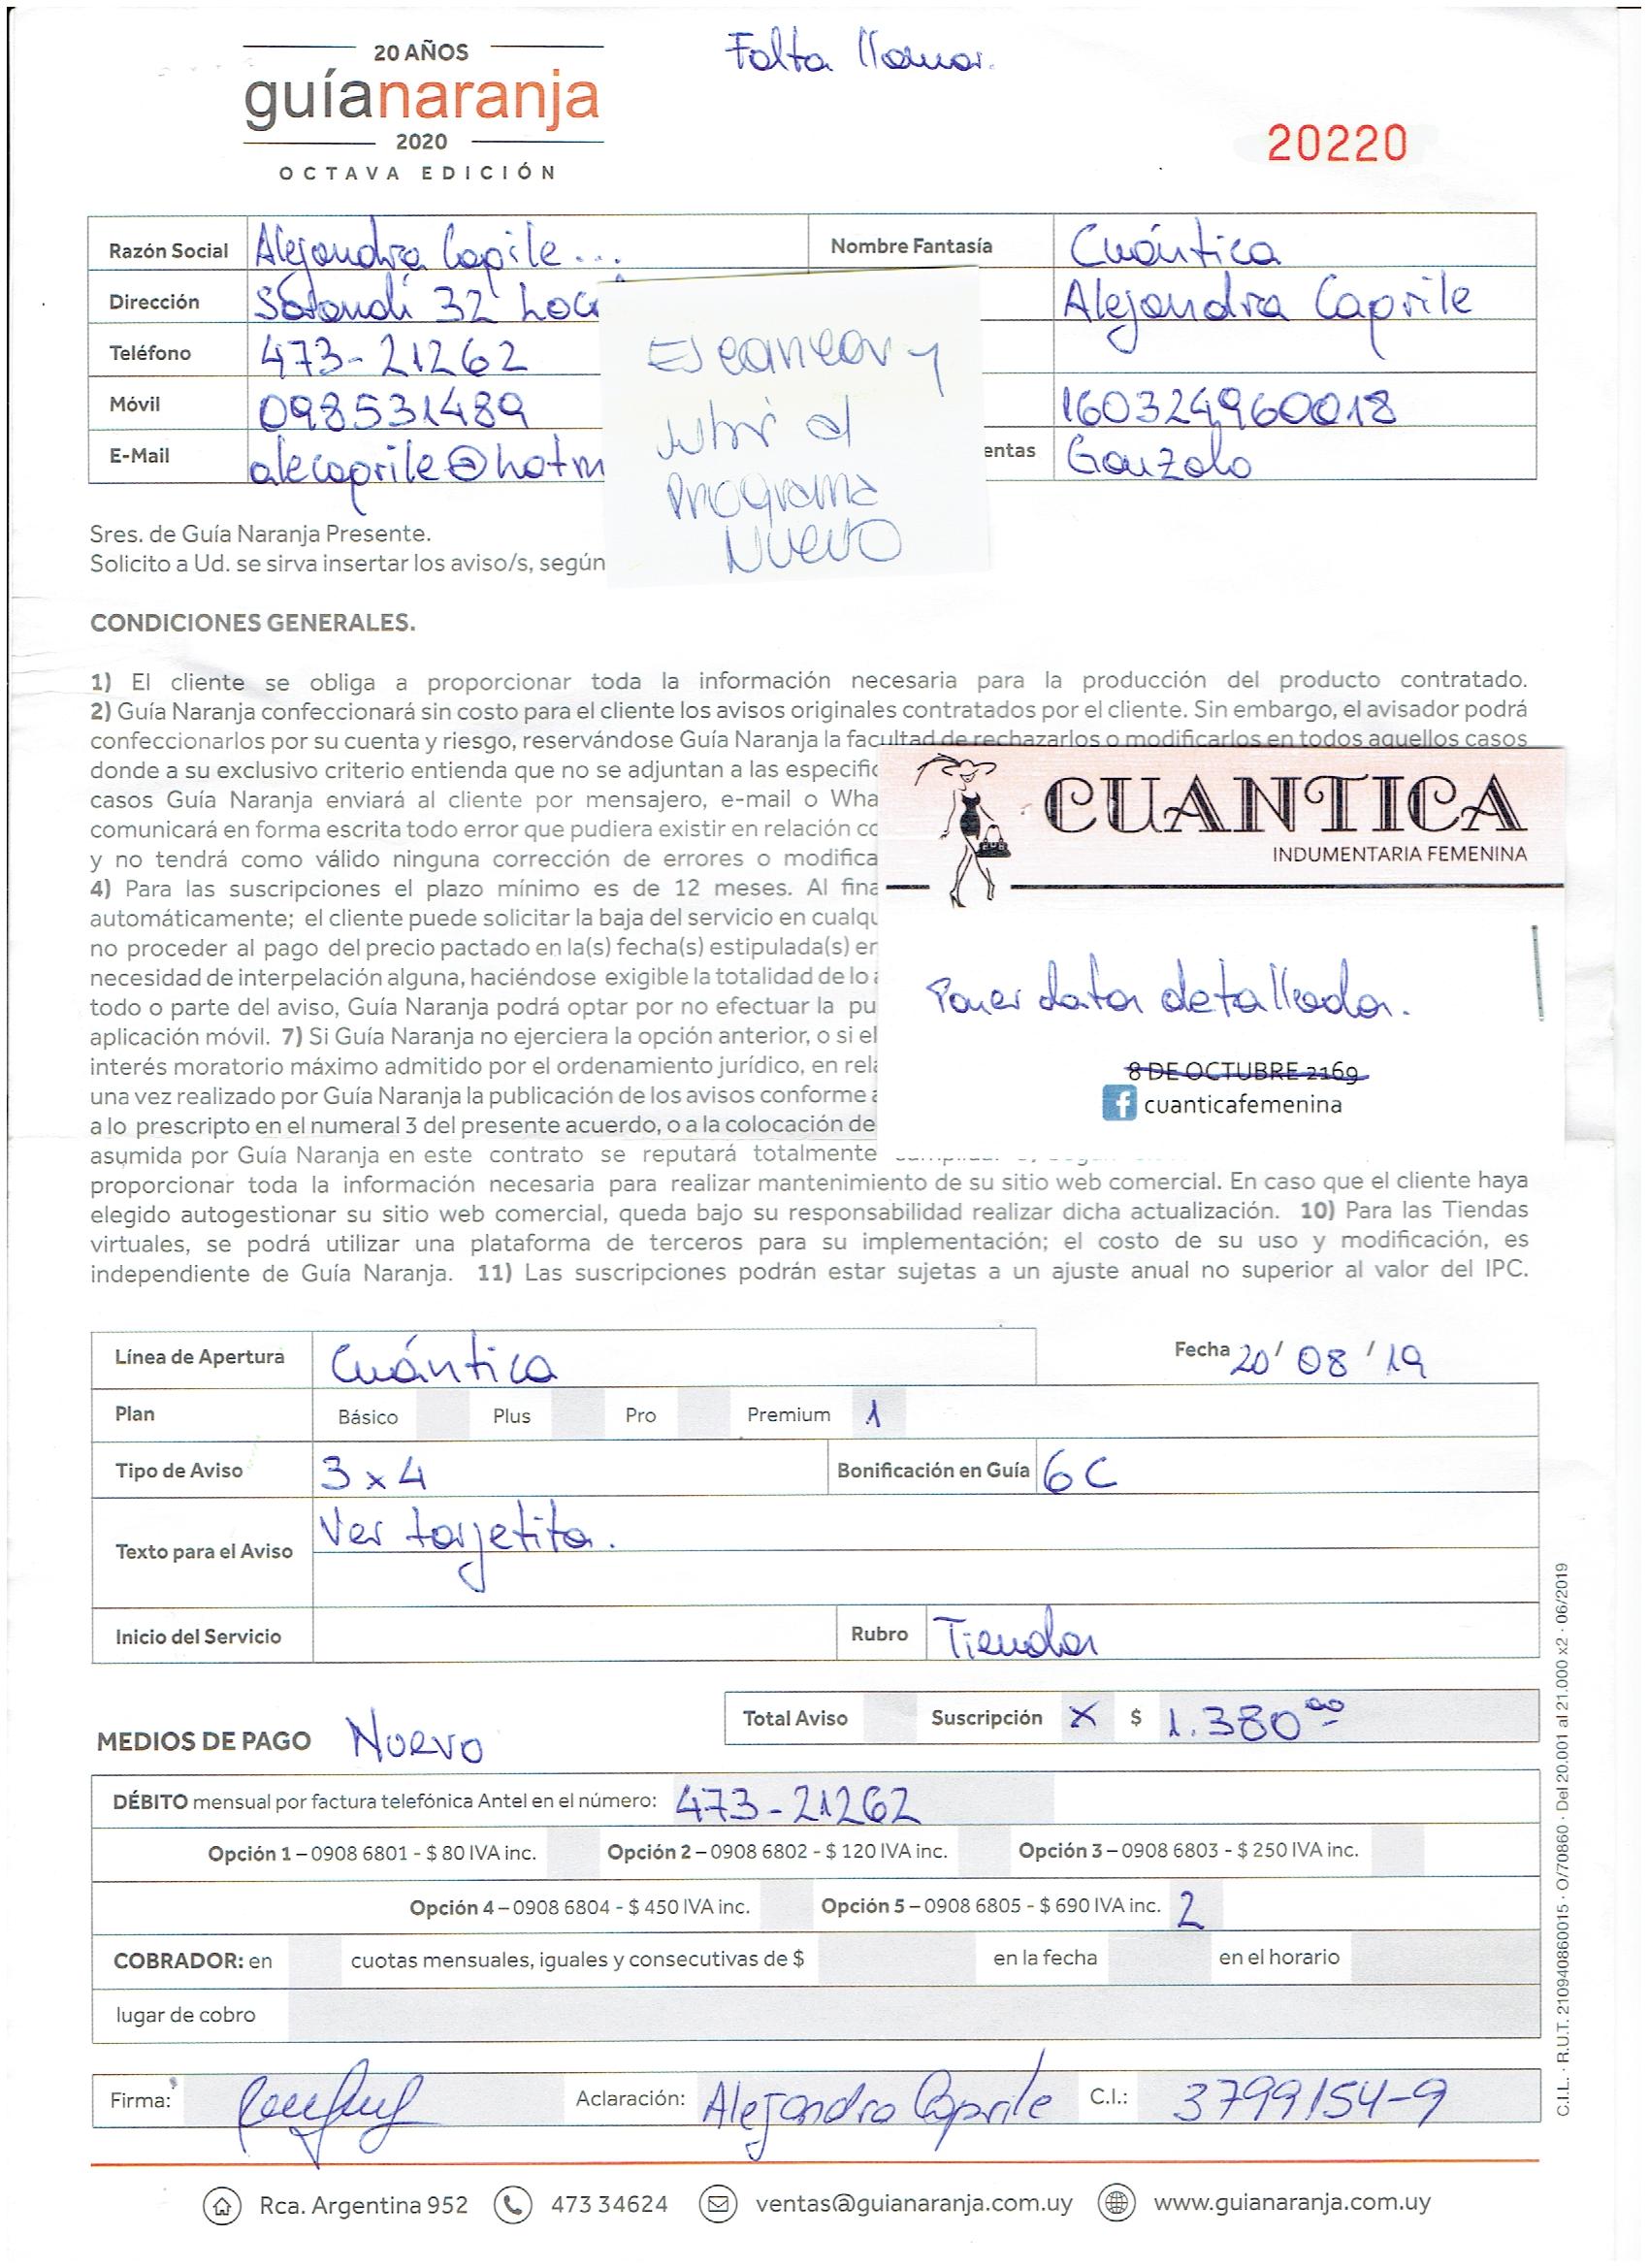 Falta llamar.
20 AÑOS
guíanaranja
2020
OCTAVA EDICIÓN
20220
Razón Social Alejandra Caprile ... Nombre Fantasía Cuántica
Dirección Sarandí 32 Loc Alejandra Caprile
Teléfono 473-21262
Móvil 098531489 160324960018
E-Mail alecaprile@hotm entas Gonzalo
Escanear y
subir al
Programa
Nuevo
Sres. de Guía Naranja Presente.
Solicito a Ud. se sirva insertar los aviso/s, según
CONDICIONES GENERALES.
1) El cliente se obliga a proporcionar toda la información necesaria para la producción del producto contratado.
2) Guía Naranja confeccionará sin costo para el cliente los avisos originales contratados por el cliente. Sin embargo, el avisador podrá
confeccionarlos por su cuenta y riesgo, reservándose Guía Naranja la facultad de rechazarlos o modificarlos en todos aquellos casos
donde a su exclusivo criterio entienda que no se adjuntan a las especific
casos Guía Naranja enviará al cliente por mensajero, e-mail o Wha
comunicará en forma escrita todo error que pudiera existir en relación co
y no tendrá como válido ninguna corrección de errores o modifica
4) Para las suscripciones el plazo mínimo es de 12 meses. Al fina
automáticamente; el cliente puede solicitar la baja del servicio en cualqu
no proceder al pago del precio pactado en la(s) fecha(s) estipulada(s) en
necesidad de interpelación alguna, haciéndose exigible la totalidad de lo a
todo o parte del aviso, Guía Naranja podrá optar por no efectuar la pu
aplicación móvil. 7) Si Guía Naranja no ejerciera la opción anterior, o si el
interés moratorio máximo admitido por el ordenamiento jurídico, en rela
una vez realizado por Guía Naranja la publicación de los avisos conforme a
a lo prescripto en el numeral 3 del presente acuerdo, o a la colocación de
asumida por Guía Naranja en este contrato se reputará totalmente
proporcionar toda la información necesaria para realizar mantenimiento de su sitio web comercial. En caso que el cliente haya
elegido autogestionar su sitio web comercial, queda bajo su responsabilidad realizar dicha actualización. 10) Para las Tiendas
virtuales, se podrá utilizar una plataforma de terceros para su implementación; el costo de su uso y modificación, es
independiente de Guía Naranja. 11) Las suscripciones podrán estar sujetas a un ajuste anual no superior al valor del IPC.
CUANTICA
INDUMENTARIA FEMENINA
Poner data detallada.
8 DE OCTUBRE 2169
cuanticafemenina
Línea de Apertura Cuántica Fecha 20/08/19
Plan Básico Plus Pro Premium 1
Tipo de Aviso 3x4 Bonificación en Guía 6C
Texto para el Aviso Ver tarjetita.
Inicio del Servicio Rubro Tiendas
Total Aviso Suscripción X $ 1.380⁰⁰
MEDIOS DE PAGO Nuevo
DÉBITO mensual por factura telefónica Antel en el número: 473-21262
Opción 1 – 0908 6801 - $ 80 IVA inc. Opción 2 – 0908 6802 - $ 120 IVA inc. Opción 3 – 0908 6803 - $ 250 IVA inc.
Opción 4 – 0908 6804 - $ 450 IVA inc. Opción 5 – 0908 6805 - $ 690 IVA inc. 2
COBRADOR: en cuotas mensuales, iguales y consecutivas de $ en la fecha en el horario
lugar de cobro
Firma: Aclaración: Alejandra Caprile C.I.: 3799154-9
Rca. Argentina 952 473 34624 ventas@guianaranja.com.uy www.guianaranja.com.uy
C.I.L. · R.U.T. 210940860015 · O/70860 · Del 20.001 al 21.000 x2 · 06/2019